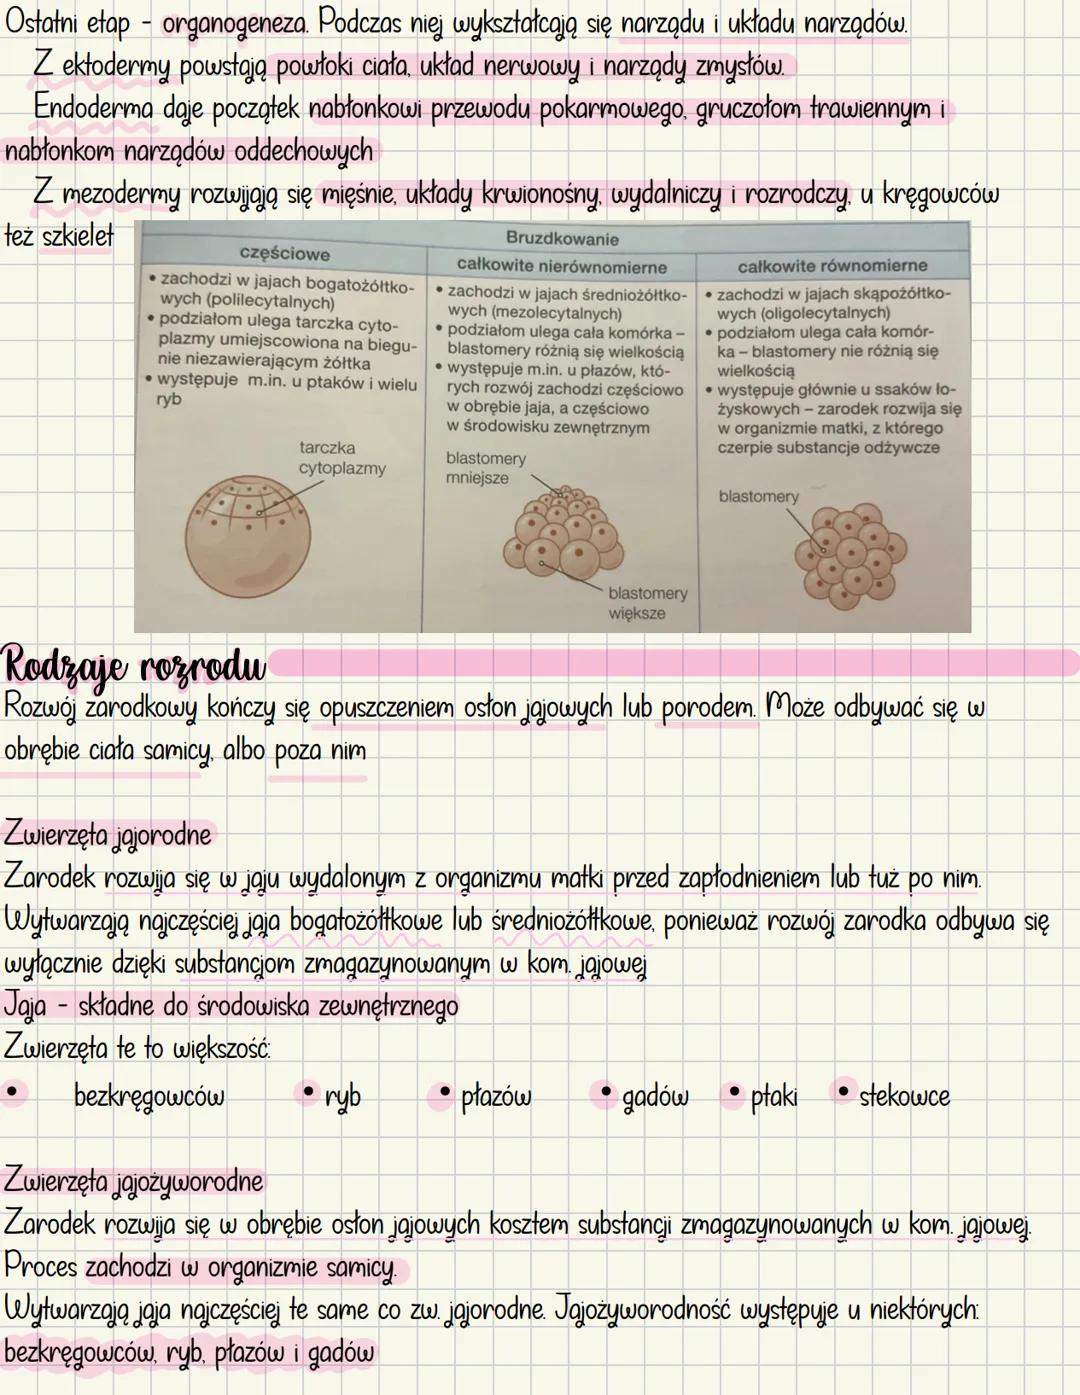 Ostatni etap - organogeneza. Podczas niej wykształcają się narządu i układu narządów.
Z ektodermy powstają powłoki ciała, układ nerwowy i narządy zmysłów.
Endoderma daje początek nabłonkowi przewodu pokarmowego, gruczołom trawiennym i
nabłonkom narządów oddechowych
Z mezodermy rozwijają się mięśnie, układy krwionośny, wydalniczy i rozrodczy, u kręgowców
też szkielet
Bruzdkowanie
częściowe
• zachodzi w jajach bogatożółtko-
wych (polilecytalnych)
• podziałom ulega tarczka cyto-
plazmy umiejscowiona na biegu-
nie niezawierającym żółtka
• występuje m.in. u ptaków i wielu
ryb
tarczka
cytoplazmy
całkowite nierównomierne
• zachodzi w jajach średniożółtko-
wych (mezolecytalnych)
• podziałom ulega cała komórka –
blastomery różnią się wielkością
• występuje m.in. u płazów, któ-
rych rozwój zachodzi częściowo
w obrębie jaja, a częściowo
w środowisku zewnętrznym
blastomery
mniejsze
blastomery
większe
całkowite równomierne
• zachodzi w jajach skąpożółtko-
wych (oligolecytalnych)
• podziałom ulega cała komór-
ka – blastomery nie różnią się
wielkością
• występuje głównie u ssaków ło-
żyskowych – zarodek rozwija się
w organizmie matki, z którego
czerpie substancje odżywcze
blastomery
Rodzaje rozrodu
Rozwój zarodkowy kończy się opuszczeniem osłon jajowych lub porodem. Może odbywać się w
obrębie ciała samicy, albo poza nim
Zwierzęta jajorodne
Zarodek rozwija się w jaju wydalonym z organizmu matki przed zapłodnieniem lub tuż po nim.
Wytwarzają najczęściej jaja bogatożółtkowe lub średniożółtkowe, ponieważ rozwój zarodka odbywa się
wyłącznie dzięki substancjom zmagazynowanym w kom. jajowej
Jaja - składne do środowiska zewnętrznego
Zwierzęta te to większość:
• bezkręgowców • ryb • płazów • gadów • ptaki • stekowce
Zwierzęta jajożyworodne
Zarodek rozwija się w obrębie osłon jajowych kosztem substancji zmagazynowanych w kom. jajowej.
Proces zachodzi w organizmie samicy.
Wytwarzają jaja najczęściej te same co zw. jajorodne. Jajożyworodność występuje u niektórych:
bezkręgowców, ryb, płazów i gadów